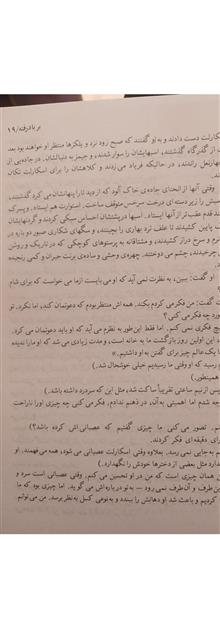 بر باد رفته / ۱۹
اسکارلت دست دادند و به او گفتند که صبح زود نزد ویلکزها منتظر او خواهند بود بعد
از گذرگاه گذشتند، اسبهایشان را سوار شدند، و جیمز به دنبالشان، در جاده‌یی از
چهارنعل راندند، در حالیکه فریاد می‌زدند و کلاهشان را برای اسکارلت تکان
وقتی آنها از انحنای جاده‌ی خاک آلود که از دید تارا پنهانشان می‌کرد گذشتند،
اسبش را زیر دسته‌ای درخت سرخس متوقف ساخت. استوارت هم ایستاد. و پسرک
چند قدم عقب‌تر از آنها ایستاد. اسبها در پشتشان احساس سبکی کردند و گردنهایشان
پایین کشیدند تا علف ترد بهاری را بچینند، و سگهای شکاری صبور دوباره در
نرم و سرخ دراز کشیدند، و مشتاقانه به پرستوهای کوچکی که در تاریک و روشن
چرخیدند، چشم می‌دوختند. چهره‌ی وحشی و ساده‌ی برنت حیران و کمی رنجیده
او گفت: ببین، به نظرت نمی‌آید که او می‌بایست از ما می‌خواست که برای شام
گفت: من فکر می‌کردم بکند. همه‌اش منتظر بودم که دعوتمان کند، اما نکرد. تو
مورد چه فکر می‌کنی؟
هیچ فکری نمی‌کنم. اما فقط این‌طور به نظرم می‌آید که او باید دعوتمان می‌کرد.
این اولین روز بازگشت ما به خانه است، و مدت زیادی می‌شد که او ما را ندیده
ما یک عالم چیز برای گفتن به او داشتیم.»
رسید که او وقتی ما رسیدیم خیلی خوشحال شد.
همینطور.
پس از نیم ساعتی تقریباً ساکت شد، مثل این که سردرد داشته باشد.
چه شدم اما اهمیتی به آن، در ذهنم ندادم. فکر می‌کنی چه چیزی او را ناراحت
نم. تصور می‌کنی ما چیزی گفتیم که عصبانی‌اش کرده باشد؟
برای دقیقه‌ای فکر کردند.
م به جایی نمی‌رسد. بعلاوه وقتی اسکارلت عصبانی می‌شود، همه می‌فهمند. او
ندارد مثل بعضی از دخترها خودش را نگهدارد.
من همان چیزی است که من در او تحسین می‌کنم. وقتی عصبانی است سرد و
این طرف و آن‌طرف نمی‌رود — به تو درباره‌اش می‌گوید. اما چیزی بود که ما
کردیم و باعث شد او دهانش را ببندد و به نوعی کسل به نظر برسد. من می‌توانم